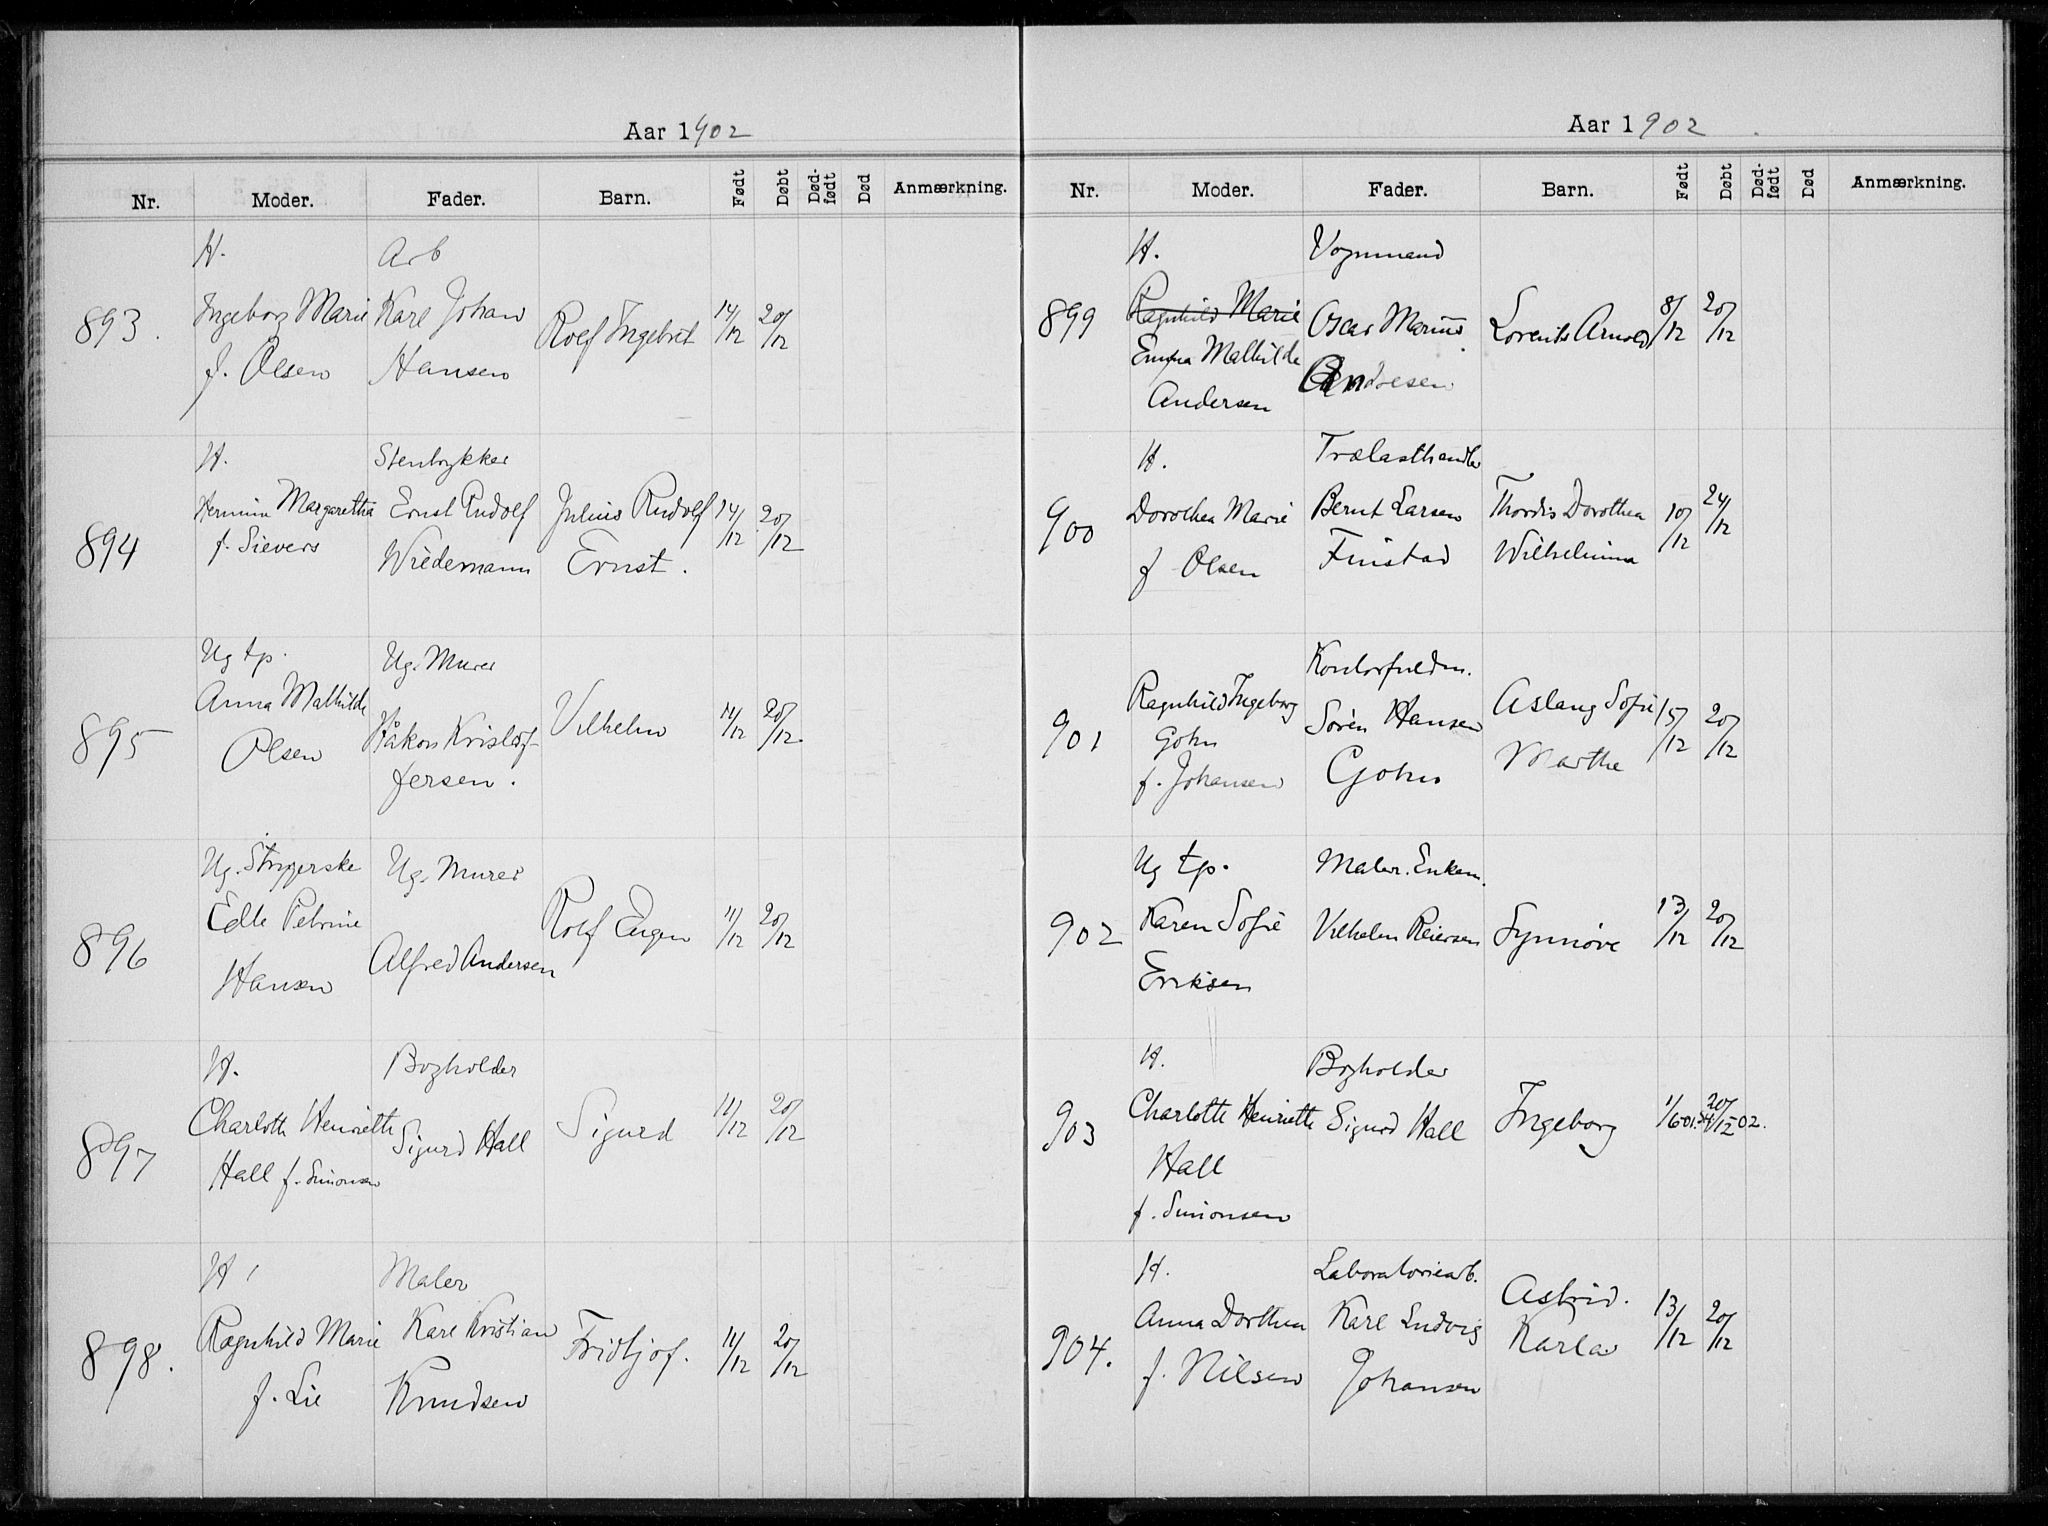 Aar 1902
Nr. Moder. Fader. Barn. Født Døbt Død-født Død Anmærkning.
893. H. Arb
Ingeborg Marie Karl Johan Rolf Ingebret 14/12 20/12
f. Olsen Hansen
894 H. Stentrykker
Hermine Margaretha Ernst Rudolf Julius Rudolf 14/12 20/12
f. Sievers Wiedemann Ernst.
895 Ug tp. Ug. Murer
Anna Mathilde Håkon Kristof- Vilhelm 11/12 20/12.
Olsen fersen.
896 Ug. Strygerske Ug. Murer
Edle Petrine Alfred Andersen Rolf Eugen 11/12 20/12
Hansen
897 H. Bogholder
Charlotte Henriette Sigurd Hall Sigurd 11/12 20/12
Hall f. Simonsen
898. H. Maler
Ragnhild Marie Karl Kristian Fridtjof. 11/12 20/12
f. Lie Knudsen
Aar 1902
Nr. Moder. Fader. Barn. Født Døbt Død-født Død Anmærkning.
899 H. Vognmand
Ragnhild Marie Oscar Marius Lorents Arnold 8/12 20/12
Emma Mathilde Andresen
Andersen
900 H. Trælasthandler
Dorothea Marie Bernt Larsen Thordis Dorothea 10/12 24/12
f Olsen Finstad Wilhelmina
901 Kontorfuldm.
Ragnhild Ingeborg Sören Hansen Aslaug Sofie 15/12 20/12
Gohn Gohn Marthe
f. Johansen
902 Ug tp. Maler. Enkem.
Karen Sofie Vilhelm Reiersen Synnöve 13/12 20/12
Eriksen
903 H. Bogholder
Charlotte Henriette Sigurd Hall Ingeborg 1/6-01. 20/12-02.
Hall
f. Simonsen
904. H. Laboratoriearb.
Anna Dorthea Karl Ludvig Astrid. 13/12 20/12
f. Nilsen Johansen Karla